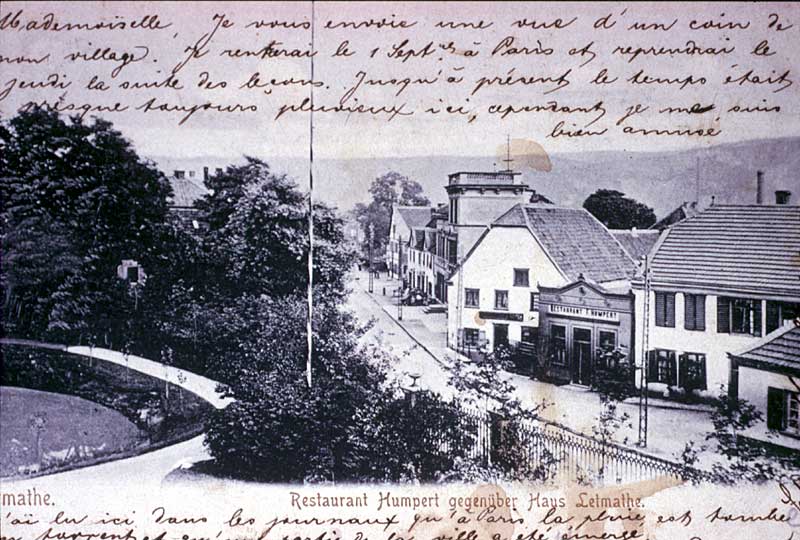 Mademoiselle, Je vous envoie une vue d'un coin de
mon village. Je rentrerai le 1 Septre à Paris et reprendrai le
jeudi la suite des leçons. Jusqu'à présent le temps était
presque toujours pluvieux ici, cependant je me suis
bien amusé
RESTAURANT F. HUMPERT
tmathe.
Restaurant Humpert gegenüber Haus Letmathe.
J'ai lu ici dans les journaux qu'à Paris la pluie est tombé
en torrent et qu'une partie de la ville a été